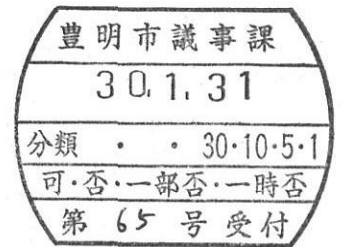 豊明市議事課
30.1.31
分類 ・ ・ 30・10・5・1
可・否・一部否・一時否
第 65 号受付